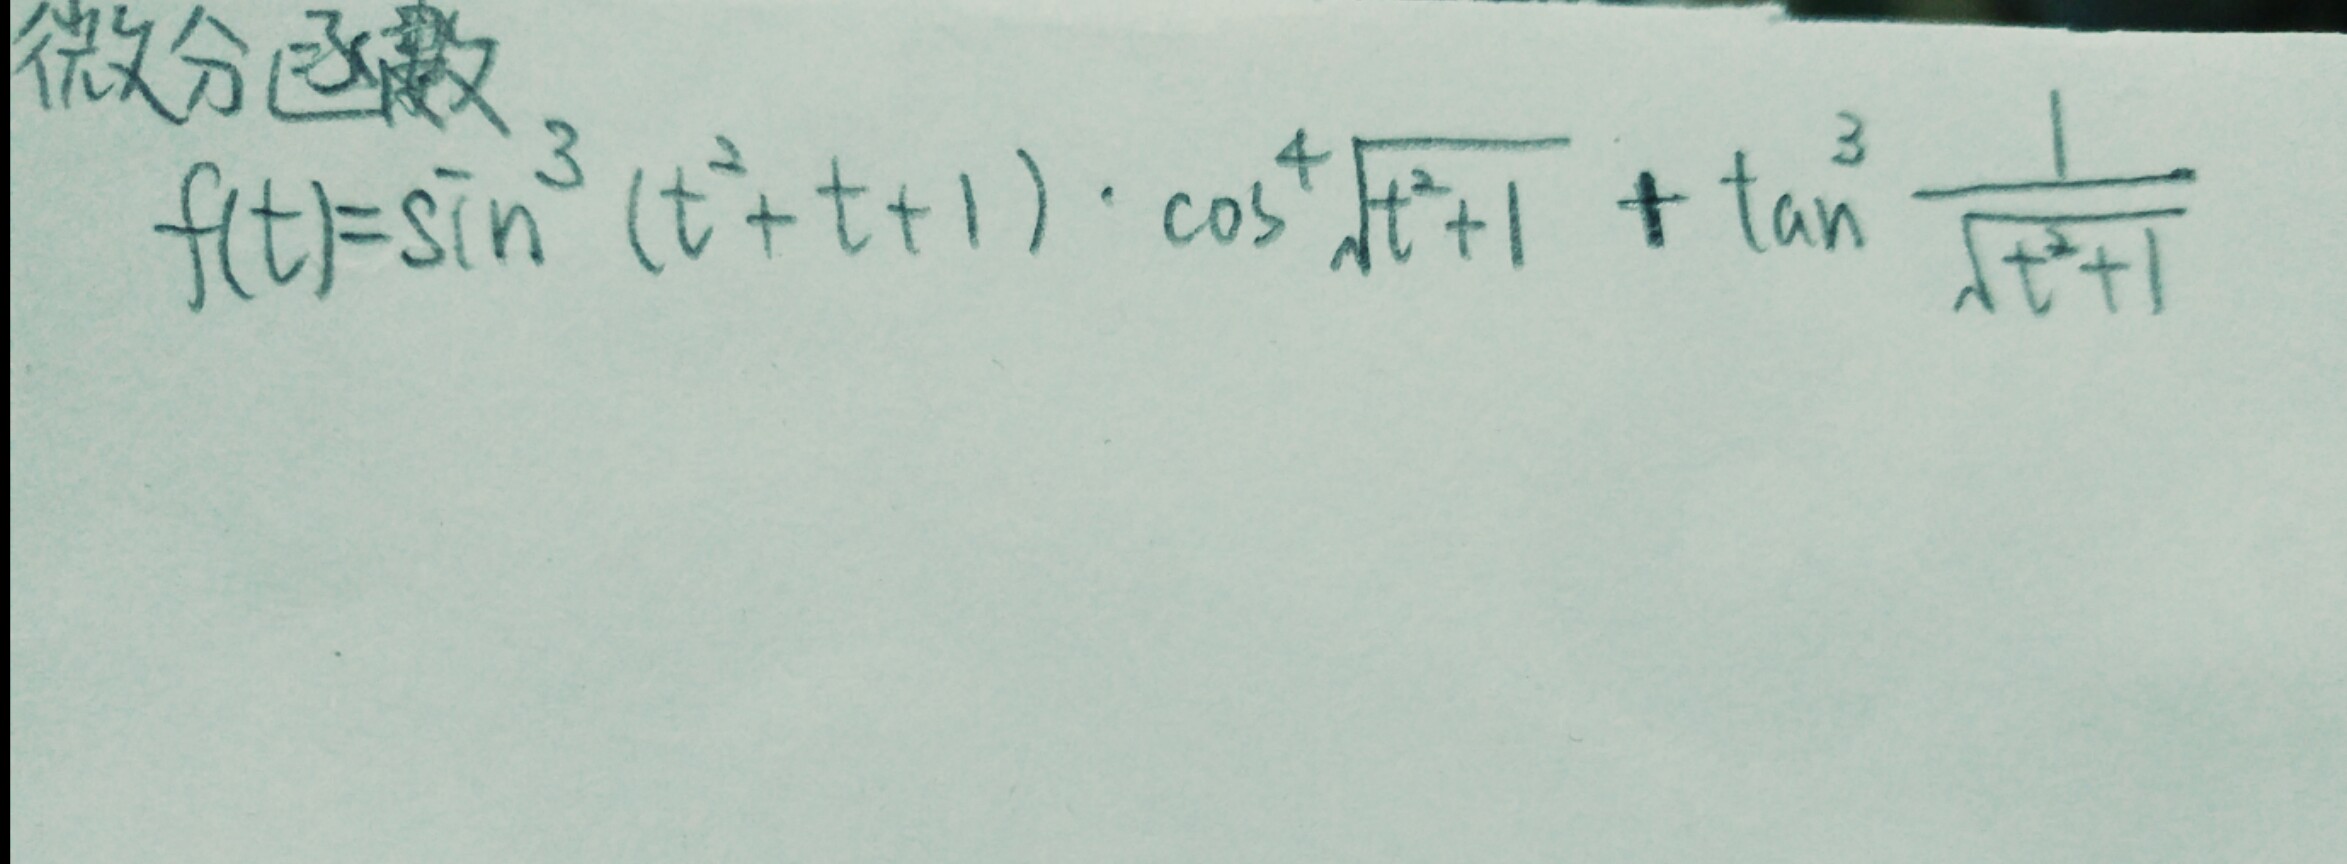 微分函數
f(t)=sin³(t²+t+1)·cos⁴√(t²+1) + tan³ 1/√(t²+1)